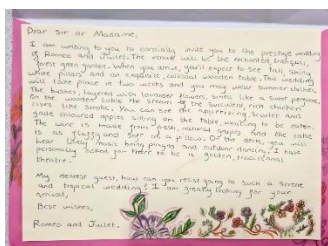 Dear Sir or Madame,
I am writing to you to cordially invite you to the prestige wedding
of Romeo and Juliet. The venue will be the enchanted, tranquil,
forest green garden. When you arrive, you'll expect to see tall, shiny
white pillars and an exquisite, colossal wooden table. This wedding
will take place in two weeks and you may wear summer clothes.
The bushes, layered with lavender flowers, smell like a sweet perfume.
On the wooden table the steam of the succulent, rich chicken
rises like smoke. You can see the appetising, scarlet and
jade coloured apples sitting on the table, waiting to be eaten.
The wine is made from fresh, natural grapes and the cake
is as fluffy and soft as a pillow. On the date, you will
hear lively music being played and outdoor dancing. I have
personally asked for there to be a golden, traditional
theatre.
My dearest guest, how can you resist going to such a serene
and topical wedding? I am greatly looking for your
arrival,
Best wishes,
Romeo and Juliet.